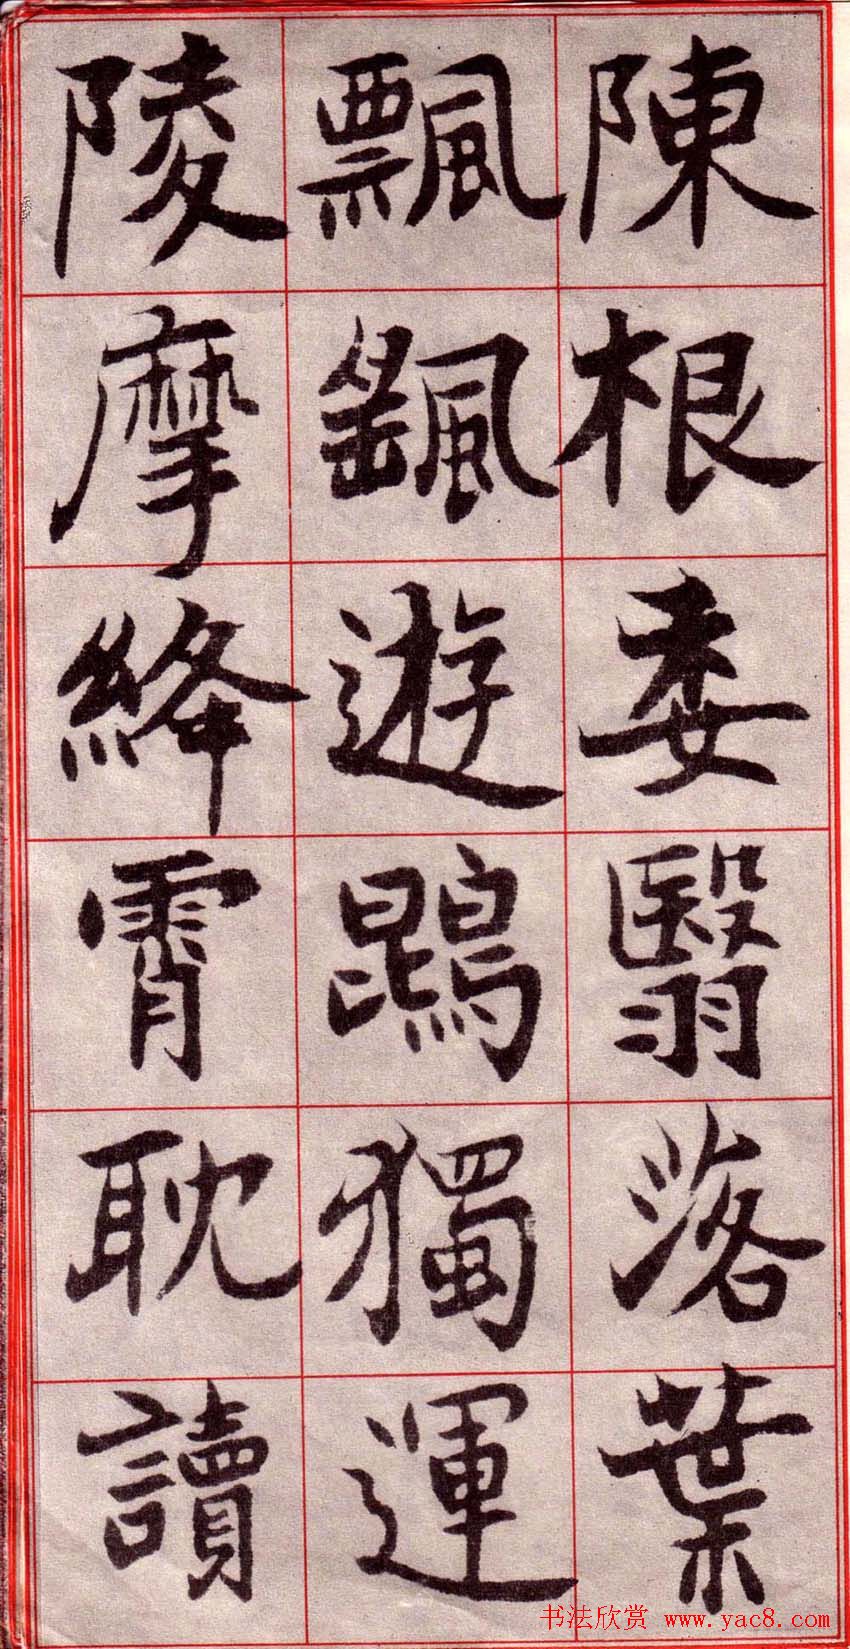 陳根委翳落葉
飄颻遊鵾獨運
陵摩絳霄耽讀
书法欣赏 www.yac8.com